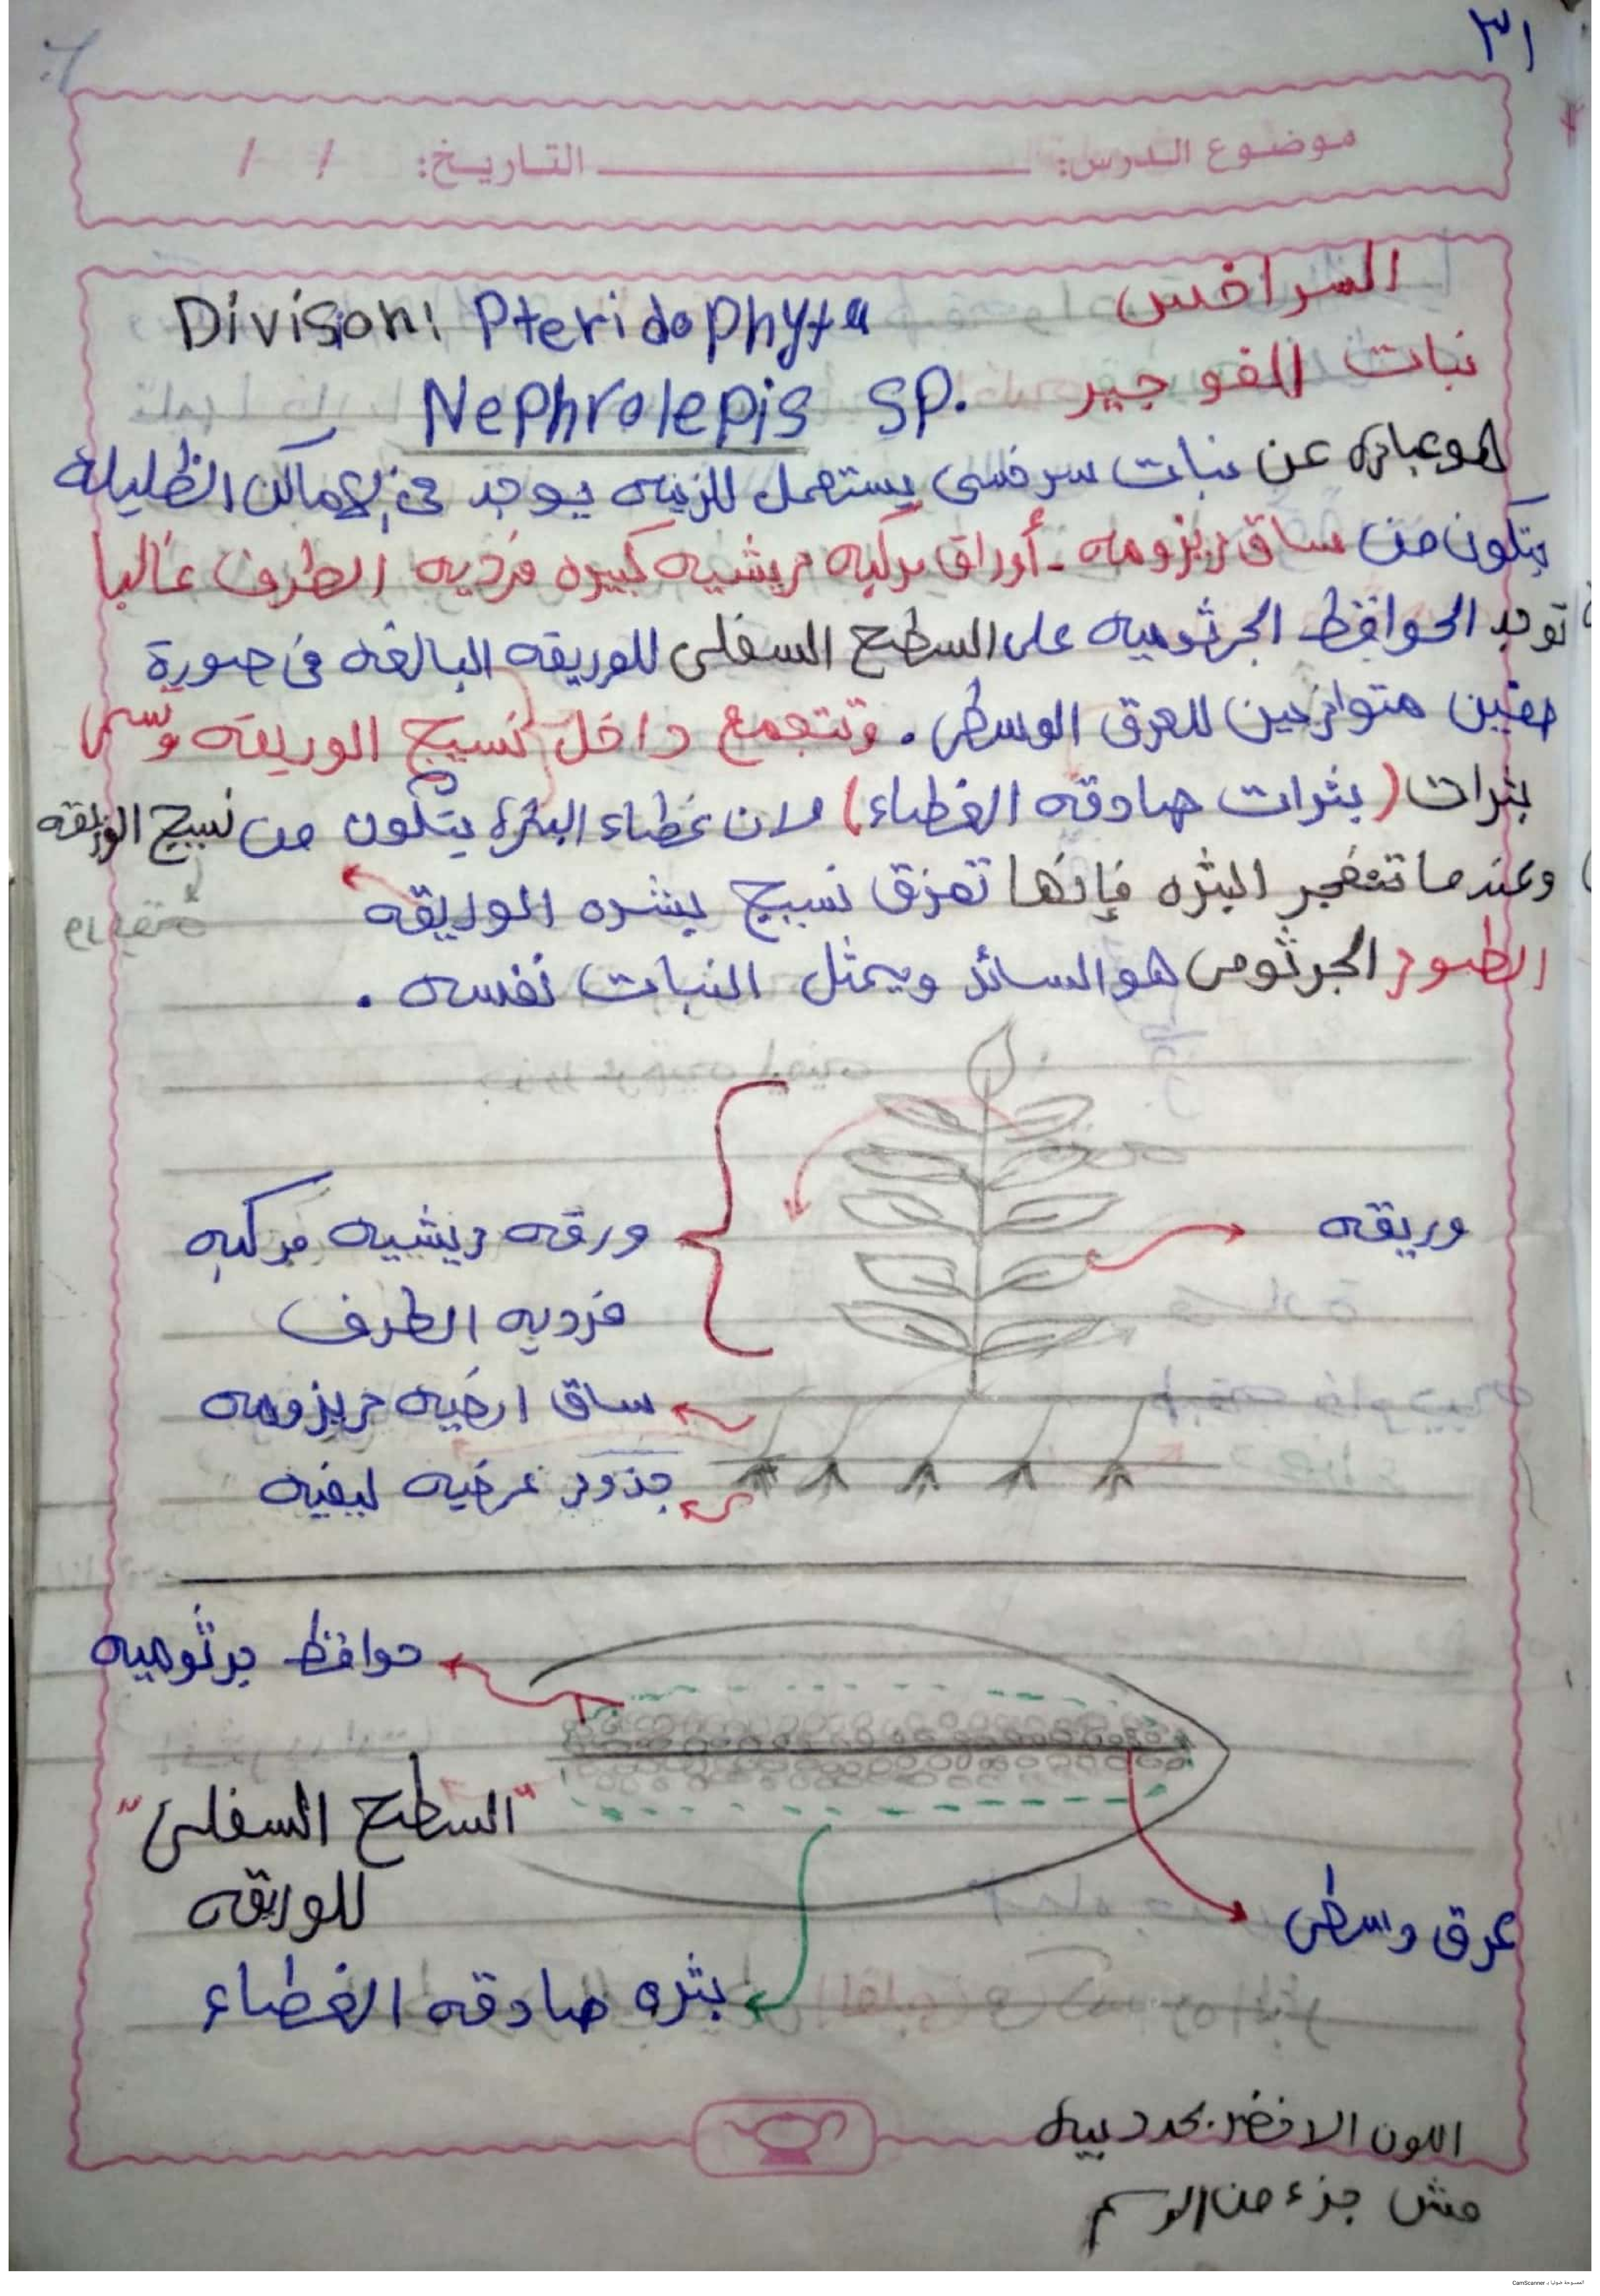 ٣١
موضوع الدرس: التاريخ: / /
السراخس
Divison: Pteridophyta
نبات الفوجير
Nephrolepis sp.
هو عباره عن نبات سرخسى يستعمل للزينه يوجد فى الاماكن الظليلة
يتكون من ساق ريزومه - أوراق مركبه ريشيه كبيره فرديه الطرف غالبا
توجد الحوافظ الجرثوميه على السطح السفلى للوريقه البالغه فى صورة
صفين متوازيين للعرق الوسطى. وتتجمع داخل نسيج الوريقه وتسمى
بثرات (بثرات صادقه الغطاء) لان غطاء البثرة يتكون من نسيج الوريقه
وعندما تنفجر البثره فإنها تمزق نسيج بشره الوريقه
الطور الجرثومى هو السائد ويمثل النبات نفسه.
وريقه
ورقه ريشيه مركبه
فرديه الطرف
ساق ارضيه ريزومه
جذور عرضيه ليفيه
حوافظ جرثوميه
"السطح السفلى"
للوريقه
عرق وسطى
بثره صادقه الغطاء
اللون الاخضر بحدد بيه
مش جزء من الرسم
الممسوحة ضوئيا بـ CamScanner